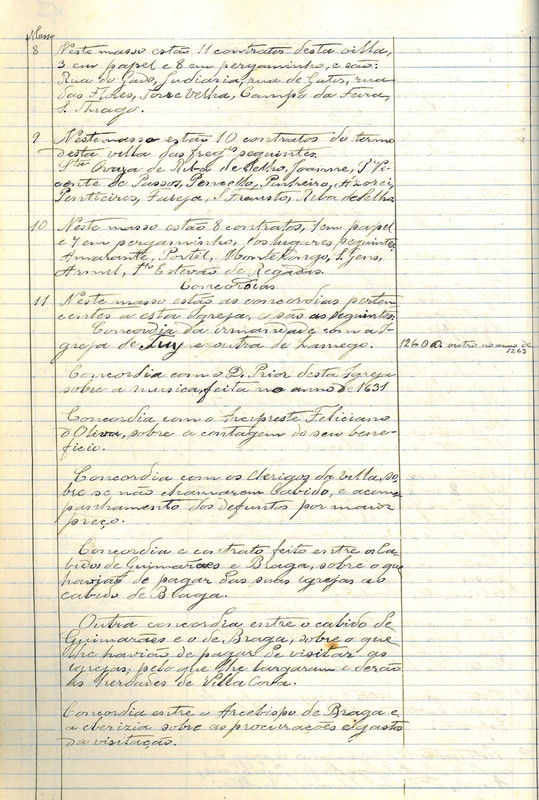 Masso
8 Neste masso estão 11 contratos desta villa,
3 em papel e 8 em pergaminho, e são:
Rua do Gado, Judiaria, rua de Gatos, rua
das Flores, Torre Velha, Campo da Feira,
S. Thiago.
9 Neste masso estão 10 contratos do termo
desta villa das freg.as seguintes.
S.ta Ovaya de Riba de Selho, Joanne, S. Vi-
cente de Passos, Pencello, Pinheiro, Azorei,
Pentieiros, Fareja, S. Fraústo, Riba de Selho
10 Neste masso estão 8 contratos, 1 em papel
e 7 em pergaminho, dos lugares seguintes:
Amarante, Portel, Monte Longo, S. Gens,
Armil, S.to Estevão de Regadas.
Concordias
11 Neste masso estão as concordias perten-
centes a esta Igreja, e são as seguintes:
Concordia da irmandade com a I-
greja de Tuy e outra de Lamego. 1260 a outro no anno de
1263
Concordia com o D. Prior desta Igreja
sobre a musica, feita no anno de 1631
Concordia com o Arcipreste Feliciano
d'Oliva, sobre a contagem do seu bene-
ficio.
Concordia com os clerigos da villa, so-
bre se não chamarem Cabido, e acom-
panhamento dos defuntos por maior
preço.
Concordia e contrato feito entre os Ca-
bidos de Guimarães e Braga, sobre o que
havião de pagar das suas igrejas ao
cabido de Braga.
Outra concordia entre o cabido de
Guimarães e o de Braga, sobre o que
lhe havião de pagar de visitar as
igrejas, pelo que lhe largaram e derão
as herdades de Villa Cova.
Concordia entre o Arcebispo de Braga e
a clerizia sobre as procurações e gastos
da visitação.